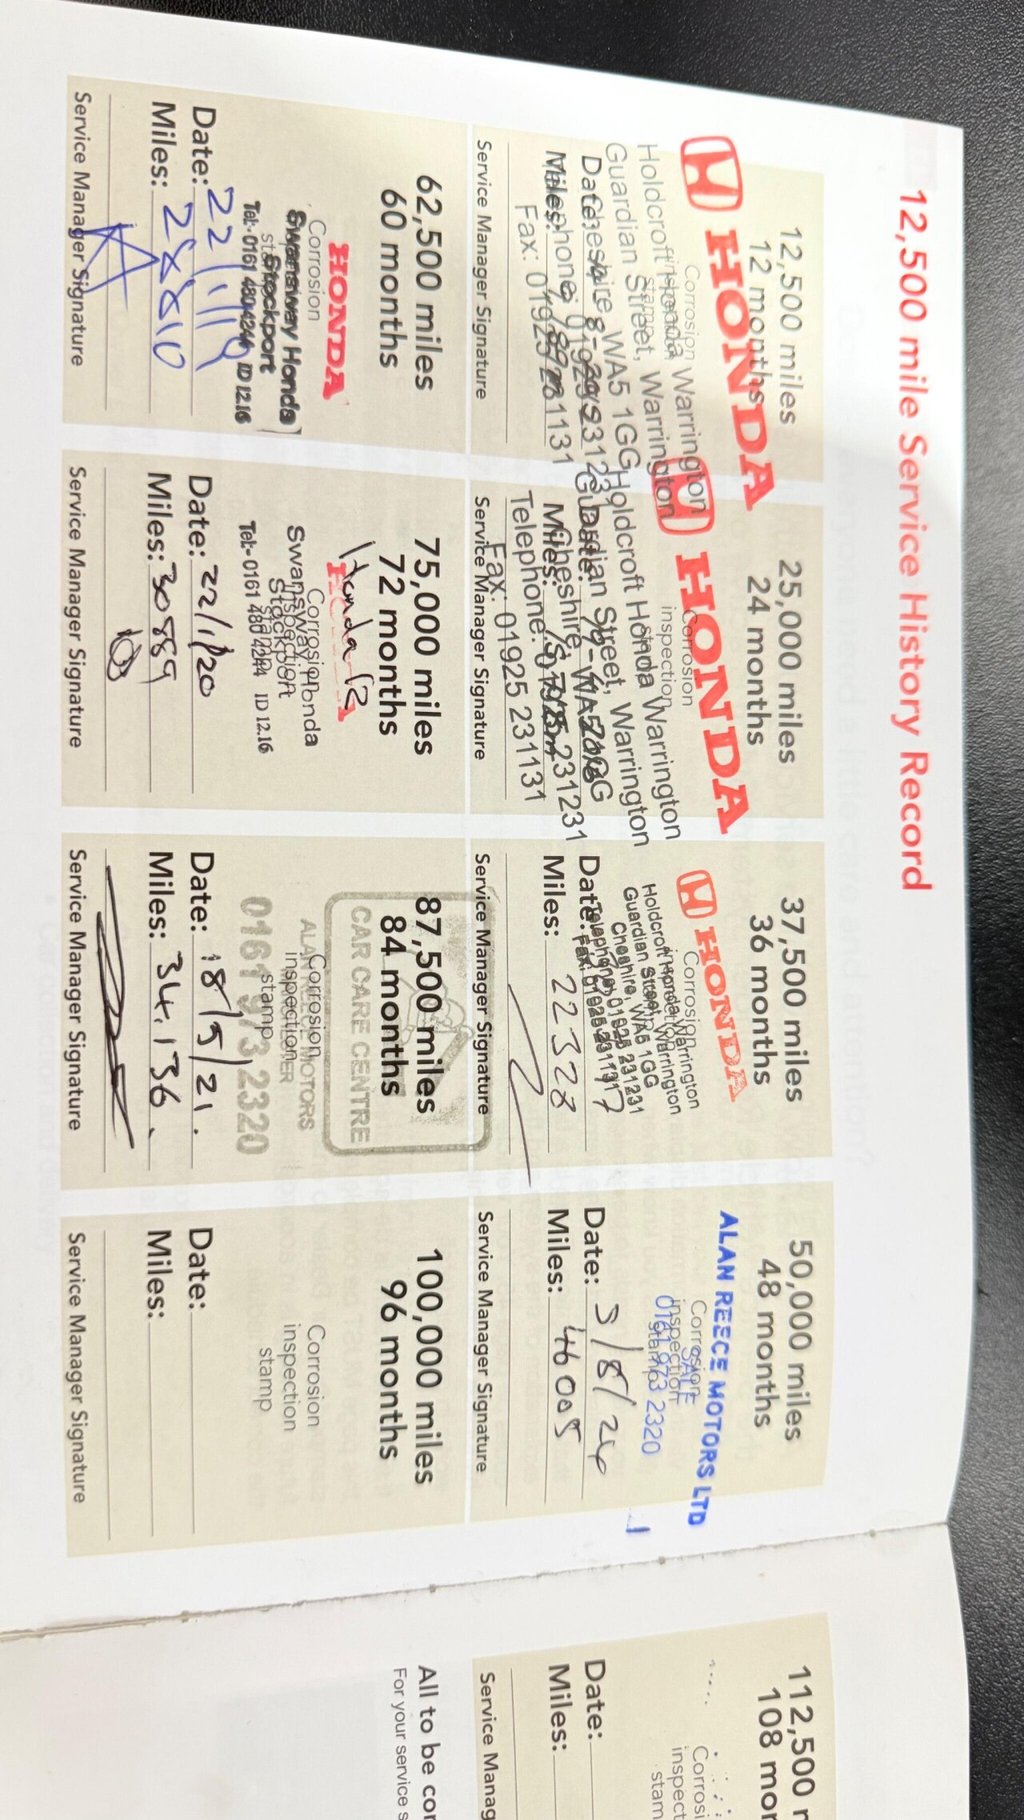 12,500 mile Service History Record
12,500 miles
12 months
HONDA
Corrosion
Holdcroft Honda Warrington
Guardian Street, Warrington
Cheshire, WA5 1GG
Date:
Miles:
Fax: 01925 231131
Service Manager Signature
25,000 miles
24 months
HONDA
Corrosion
inspection
Holdcroft Honda Warrington
Guardian Street, Warrington
Cheshire, WA5 1GG
Date:
Miles:
Telephone: 01925 231231
Fax: 01925 231131
Service Manager Signature
37,500 miles
36 months
HONDA
Corrosion
Holdcroft Honda Warrington
Guardian Street, Warrington
Cheshire, WA5 1GG
Telephone: 01925 231231
Date:
Miles: 22328
Service Manager Signature
50,000 miles
48 months
ALAN REECE MOTORS LTD
Corrosion
inspection
stamp
SALE
0161 973 2320
Date: 3/8/24
Miles: 46005
Service Manager Signature
62,500 miles
60 months
HONDA
Corrosion
Swansway Honda
Stockport
Tel:- 0161 480 4244 ID 12.16
Date: 22/1/19
Miles: 28810
Service Manager Signature
75,000 miles
72 months
Corrosion
inspection
Swansway Honda
Stockport
Tel:- 0161 480 4244 ID 12.16
Date: 22/1/20
Miles: 30889
Service Manager Signature
87,500 miles
84 months
CAR CARE CENTRE
Corrosion
inspection
stamp
ALAN REECE MOTORS
0161 973 2320
Date: 18/5/21.
Miles: 34,136.
Service Manager Signature
100,000 miles
96 months
Corrosion
inspection
stamp
Date:
Miles:
Service Manager Signature
112,500
108
Date:
Miles:
All to be
For your service